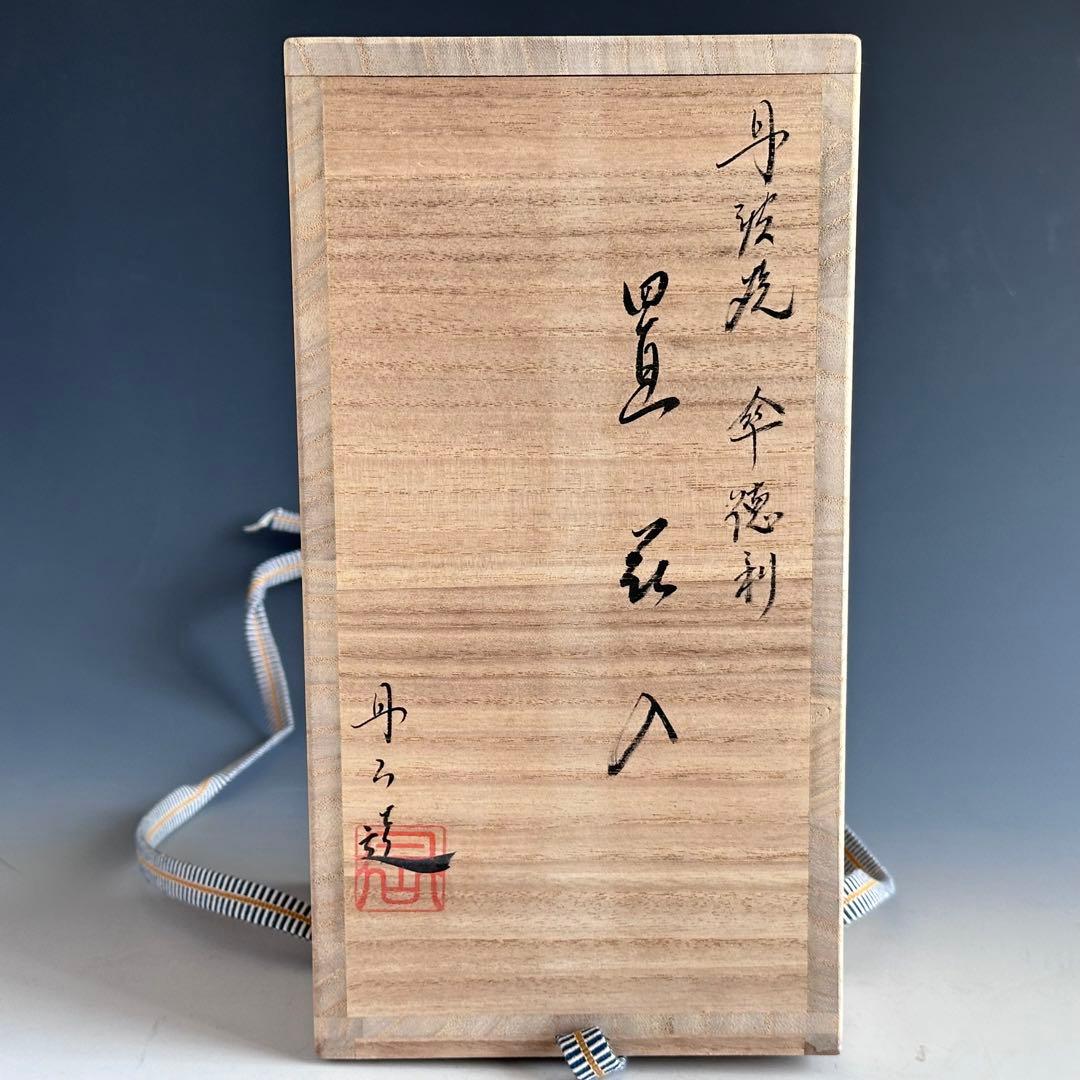 丹波焼 傘徳利
置花入
丹下造